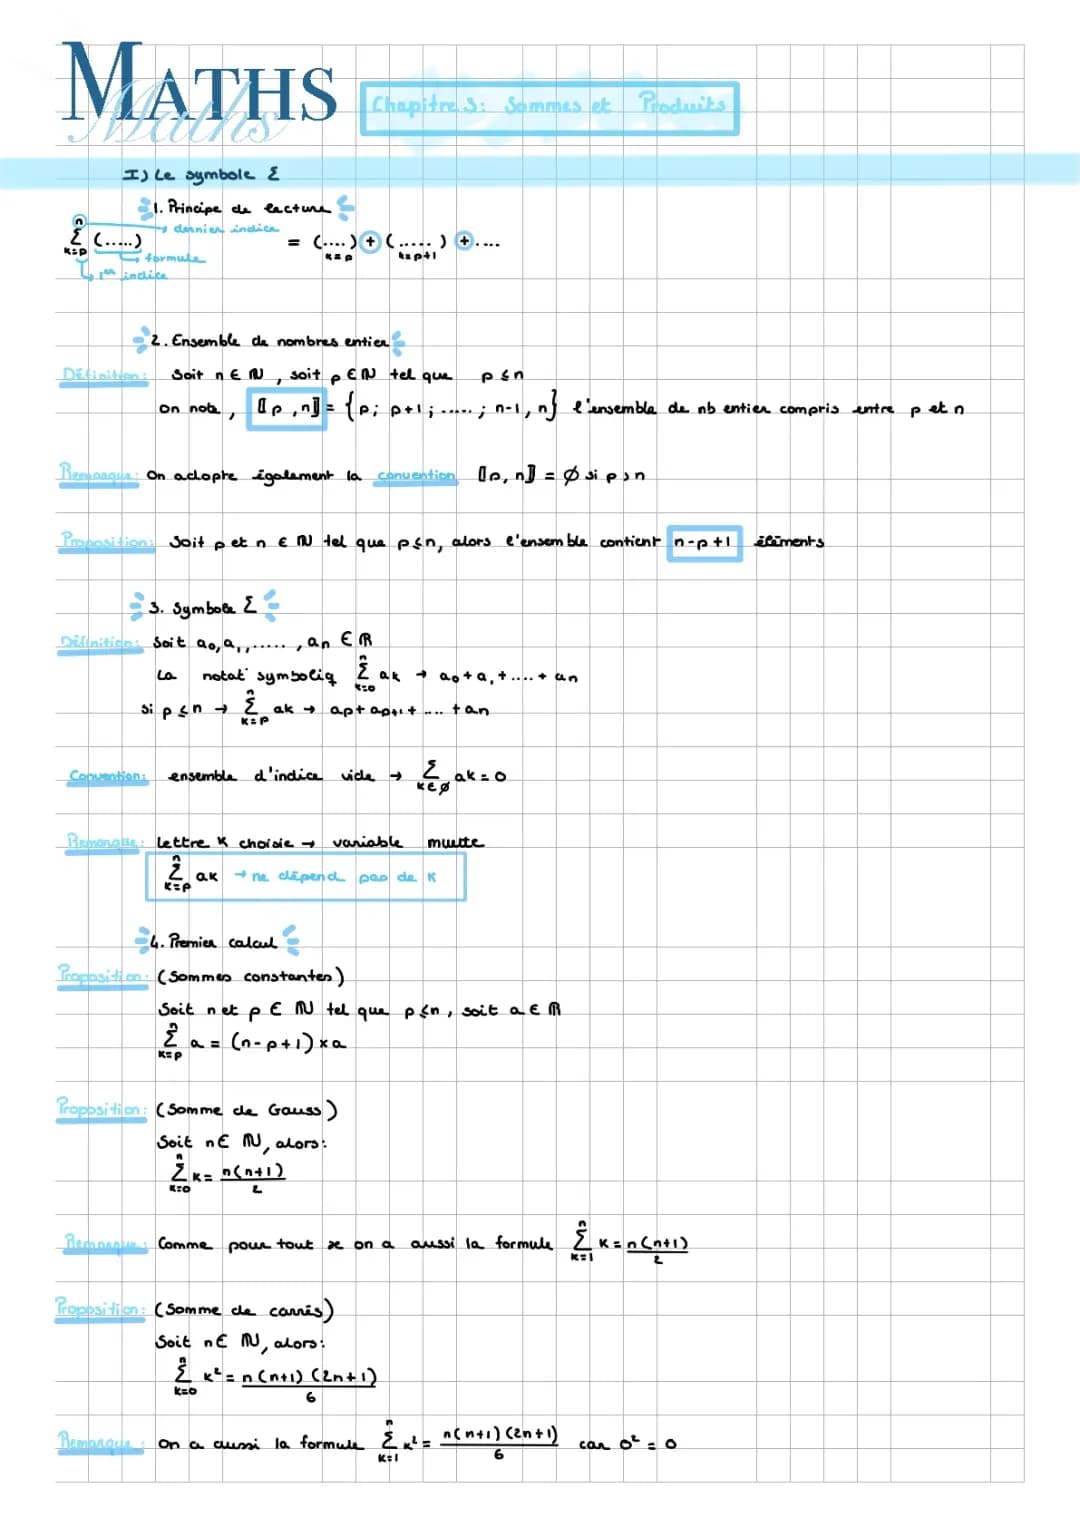 MATHS
Maths
Chapitre 3: Sommes et Produits
I) Le symbole Σ
1. Principe de lecture
n → dernier indice
Σ (.....) = (....) + (.....) + ....
k=p k=p k=p+1
formule
1er indice
2. Ensemble de nombres entier
Définition: Soit n ∈ ℕ, soit p ∈ ℕ tel que p ≤ n
on note, ⟦p, n⟧ = {p; p+1; .....; n-1, n} l'ensemble de nb entier compris entre p et n
Remarque: On adopte également la convention ⟦p, n⟧ = ∅ si p > n
Proposition: Soit p et n ∈ ℕ tel que p ≤ n, alors l'ensemble contient n-p+1 éléments
3. Symbole Σ
Définition: Soit a₀, a₁, ....., an ∈ ℝ
La notat° symboliq Σ_{k=0}^{n} ak → a₀ + a₁ + .... + an
si p ≤ n → Σ_{k=p}^{n} ak → ap + ap+1 + .... + an
Convention: ensemble d'indice vide → Σ_{k∈∅} ak = 0
Remarque: Lettre K choisie → variable muette
Σ_{k=p}^{n} ak → ne dépend pas de K
4. Premier calcul
Proposition: (Sommes constantes)
Soit n et p ∈ ℕ tel que p ≤ n, soit a ∈ ℝ
Σ_{k=p}^{n} a = (n-p+1) × a
Proposition: (Somme de Gauss)
Soit n ∈ ℕ, alors:
Σ_{k=0}^{n} k = n(n+1)/2
Remarque: Comme pour tout x on a aussi la formule Σ_{k=1}^{n} k = n(n+1)/2
Proposition: (Somme de carrés)
Soit n ∈ ℕ, alors:
Σ_{k=0}^{n} k² = n(n+1)(2n+1)/6
Remarque: On a aussi la formule Σ_{k=1}^{n} k² = n(n+1)(2n+1)/6 car 0² = 0